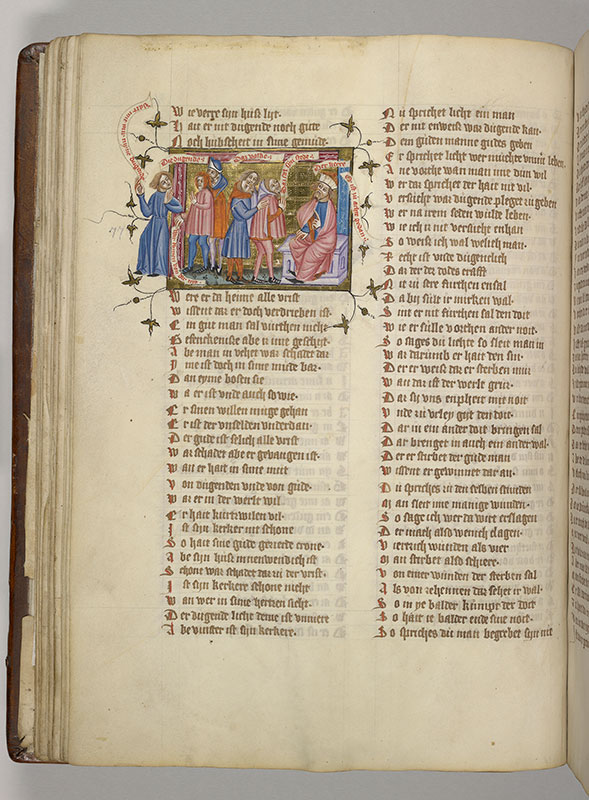 Wie verre syn huse lyt.
Hait er nit dugende noch gute
Noch hubscheit in sime gemude.
Die dugende
Daz volke
Der herre
Were er da heime alle vrist
wissent daz er doch verdrieben ist.
Ein gut man sal vurchten nicht
abe man in vehet waz schadet daz
Jme ist doch in sime mude baz.
Dan eyme bosen sie
wa er ist vnde auch so wie.
Er sinen willen muge gehan
Er ist der vnselden vnderdan.
Der gude ist selich alle vrist
waz schadet abe er gevangen ist.
wan er hait in sime mut
von dugenden vnde von gude.
waz er in der werlt wil.
Er hait kurtzwilen vil.
Jst syn kerker nit schone
So hait sine gude gezierde crone.
Abe syn huse innenwendich ist
Schone waz schadet daz zu der vrist.
Jst syn kerker schone nicht
wan wer in sime hertzen sicht.
Der dugende licht deme ist vnmere
Abe vinster ist syn kerkere.
Nu sprichet licht ein man
Der nit enweiz waz dugende kan.
Dem guden manne gudes geben
Er sprichet licht wer mochte leben
Ane vorchte wan man mir dun wil
wer daz sprichet der hait nit vil.
versucht waz dugende pleget zu geben
wer na irem seden wulde leben.
wie ich iz nit versucht enhan
So weiz ich wal welich man.
Recht ist vnde dugentlich
Daz der dez dodes crafft
Nit zu sere furchten ensal
Da by sult ir mirken wal.
wie er sulle vorchten ander noit.
So sages du lichte so sleit man in
waz darumb er hait den sin.
Der er weiz daz er sterben muz
wan daz ist der werlt gruz.
Daz sy vns enpheit mit noit
vnde zu vrley git den doit.
Daz in ein ander doit bringen sal
Daz brenget in auch ein ander wal.
Der er stirbet der gude man
wissent er gewinnet dar an.
Du spriches zu den selben stunden
man sleit ime manige wunden.
So sage ich wer da wirt erslagen
Der mach also wenich clagen.
vierzich wunden als vier
man stirbet also schiere.
von einer wunden der sterben sal
Als von zehennen daz sehet ir wal.
So im ye balder kumpt der doit
So hait ie balder ende sine noit.
So spriches du man begrebet syn nit